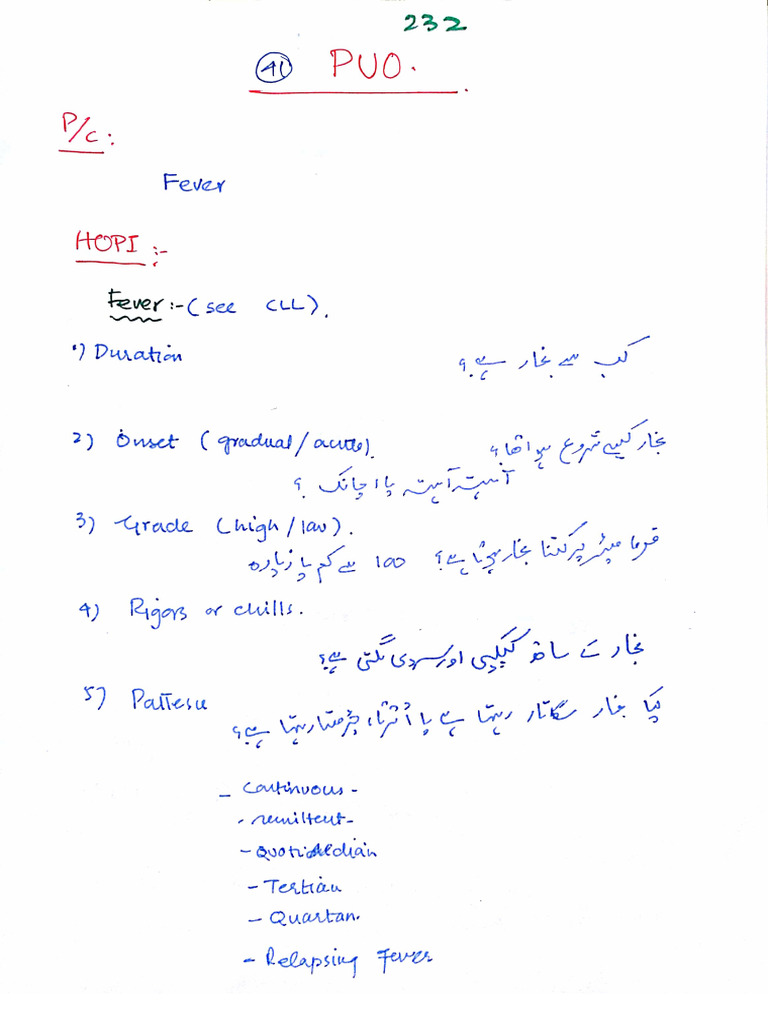 232
41 PUO.
P/C:
Fever
HOPI :-
Fever:- (see CLL).
1) Duration کب سے بخار ہے؟
2) Onset (gradual/acute). بخار کیسے شروع ہوا تھا؟
آہستہ آہستہ یا اچانک ؟
3) Grade (high/low).
تھرما میٹر پر کتنا بخار پہنچتا ہے؟ 100 سے کم یا زیادہ
4) Rigors or chills.
بخار کے ساتھ کپکپی اور سردی لگتی ہے؟
5) Pattern
کیا بخار لگاتار رہتا ہے یا اُترتا، چڑھتا رہتا ہے؟
- Continuous -
- remittent -
- Quotidian
- Tertian
- Quartan.
- Relapsing Fever